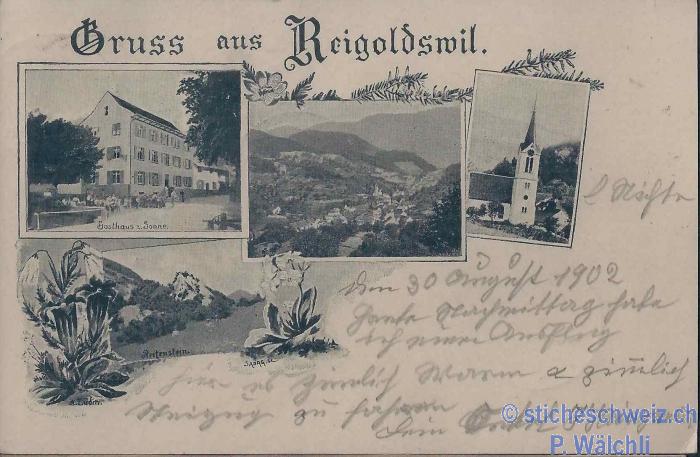 Gruss aus Reigoldswil.
Gasthaus z. Sonne.
L Nichte
Den 30 August 1902
Heute Nachmittag habe
ich einen Ausflug
Reifenstein.
hier es ziemlich Warm & ziemlich
Steizig zu fahren
dein Ernst
© sticheschweiz.ch
P. Wälchli